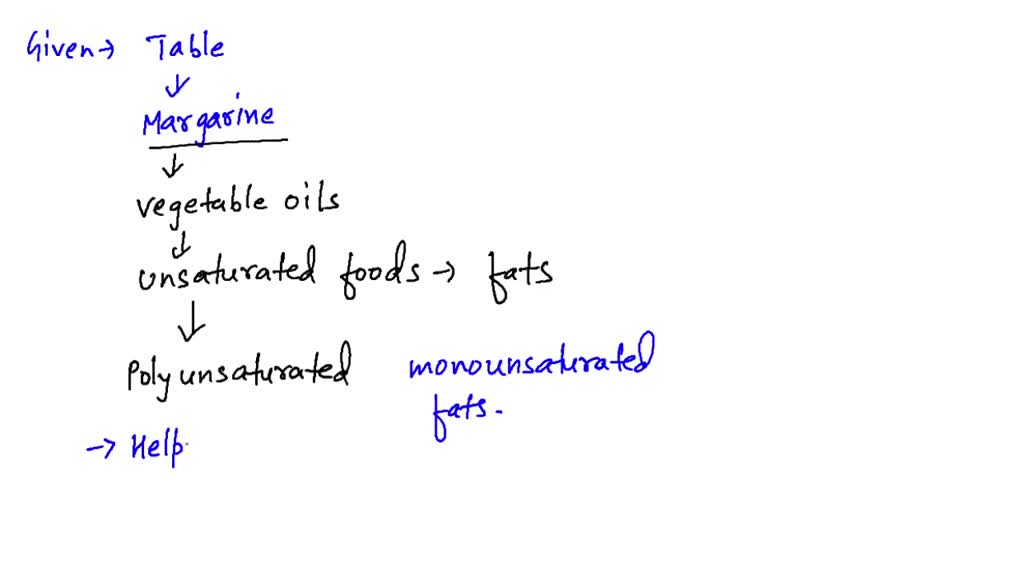 Given → Table
↓
Margarine
↓
vegetable oils
↓
unsaturated foods → fats
↓
Polyunsaturated monounsaturated
fats.
→ Help